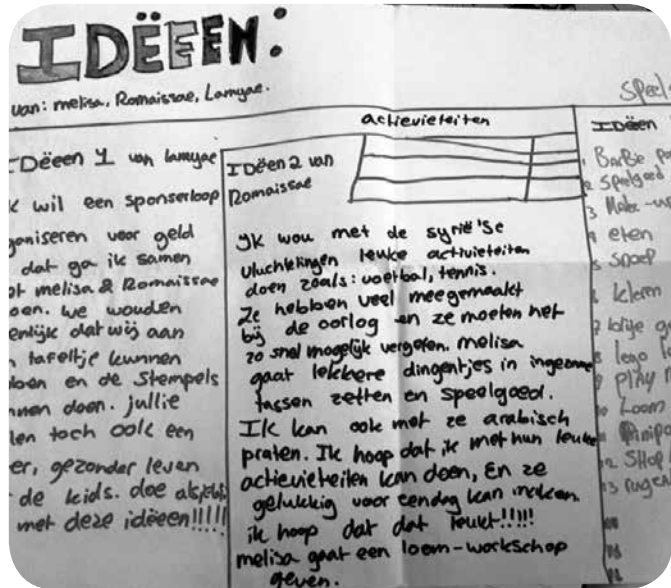 IDËEEN:
van: melisa, Romaissae, Lamyae.
IDëeen 1 van lamyae
k wil een sponserloop
ganiseren voor geld
dat ga ik samen
met melisa & Romaissae
oen. we wouden
enlijk dat wij aan
n tafeltje kunnen
en en de Stempels
nnen doen. jullie
len toch ook een
er, gezonder leven
de kids. doe alsjebl
met deze idëeen!!!!!
actievieteiten
IDëen 2 van
Romaissae
Ik wou met de syrië'se
vluchtelingen leuke activieteiten
doen zoals: voetbal, tennis.
Ze hebben veel meegemaakt
bij de oorlog en ze moeten het
zo snel mogelijk vergeten. melisa
gaat lekkere dingentjes in
tassen zetten en speelgoed.
Ik kan ook met ze arabisch
praten. Ik hoop dat ik met hun leuke
actievieteiten kan doen, En ze
gelukkig voor eendag kan maken.
ik hoop dat dat leukt!!!!!
melisa gaat een loom-workschop
geven.
Speel
IDëen
1 BarBe
2 Speelgoed
3 Make-up
4 eten
5 snoep
6 kleren
7
8 lego
9 PlAy
10 Loom
11
12 SHop
13